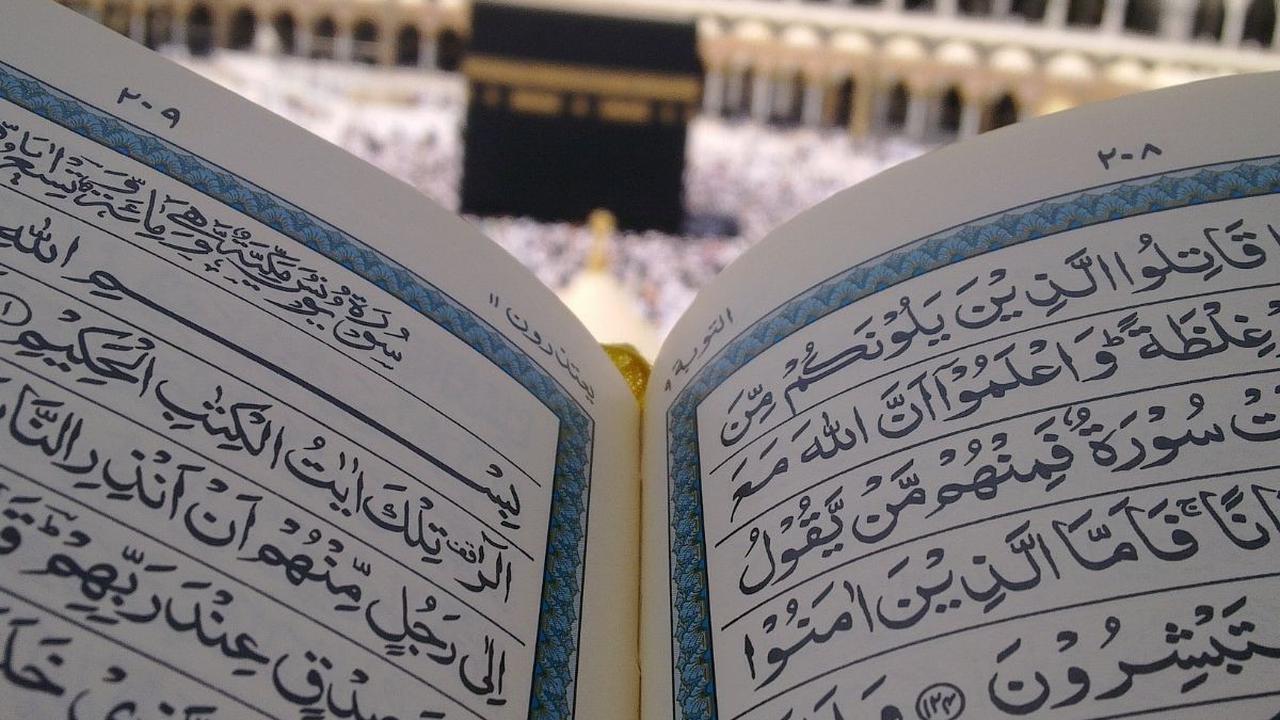 ٢٠٨
التوبة ٩
قَاتِلُوا الَّذِيْنَ يَلُوْنَكُمْ مِّنَ
غِلْظَةً ؕ وَاعْلَمُوْۤا اَنَّ اللّٰهَ مَعَ
سُوْرَةٌ فَمِنْهُمْ مَّنْ يَّقُوْلُ
فَاَمَّا الَّذِيْنَ اٰمَنُوْا
تَبْشِرُوْنَ ١٢٤
٢٠٩
يعتذرون ١١
سُوْرَةُ يُوْنُسَ مَكِّيَّةٌ وَّهِيَ
بِسْمِ اللّٰهِ
الٓرٰ تِلْكَ اٰيٰتُ الْكِتٰبِ الْحَكِيْمِ ١
اِلٰى رَجُلٍ مِّنْهُمْ اَنْ اَنْذِرِ النَّا
صِدْقٍ عِنْدَ رَبِّهِمْ ؕ